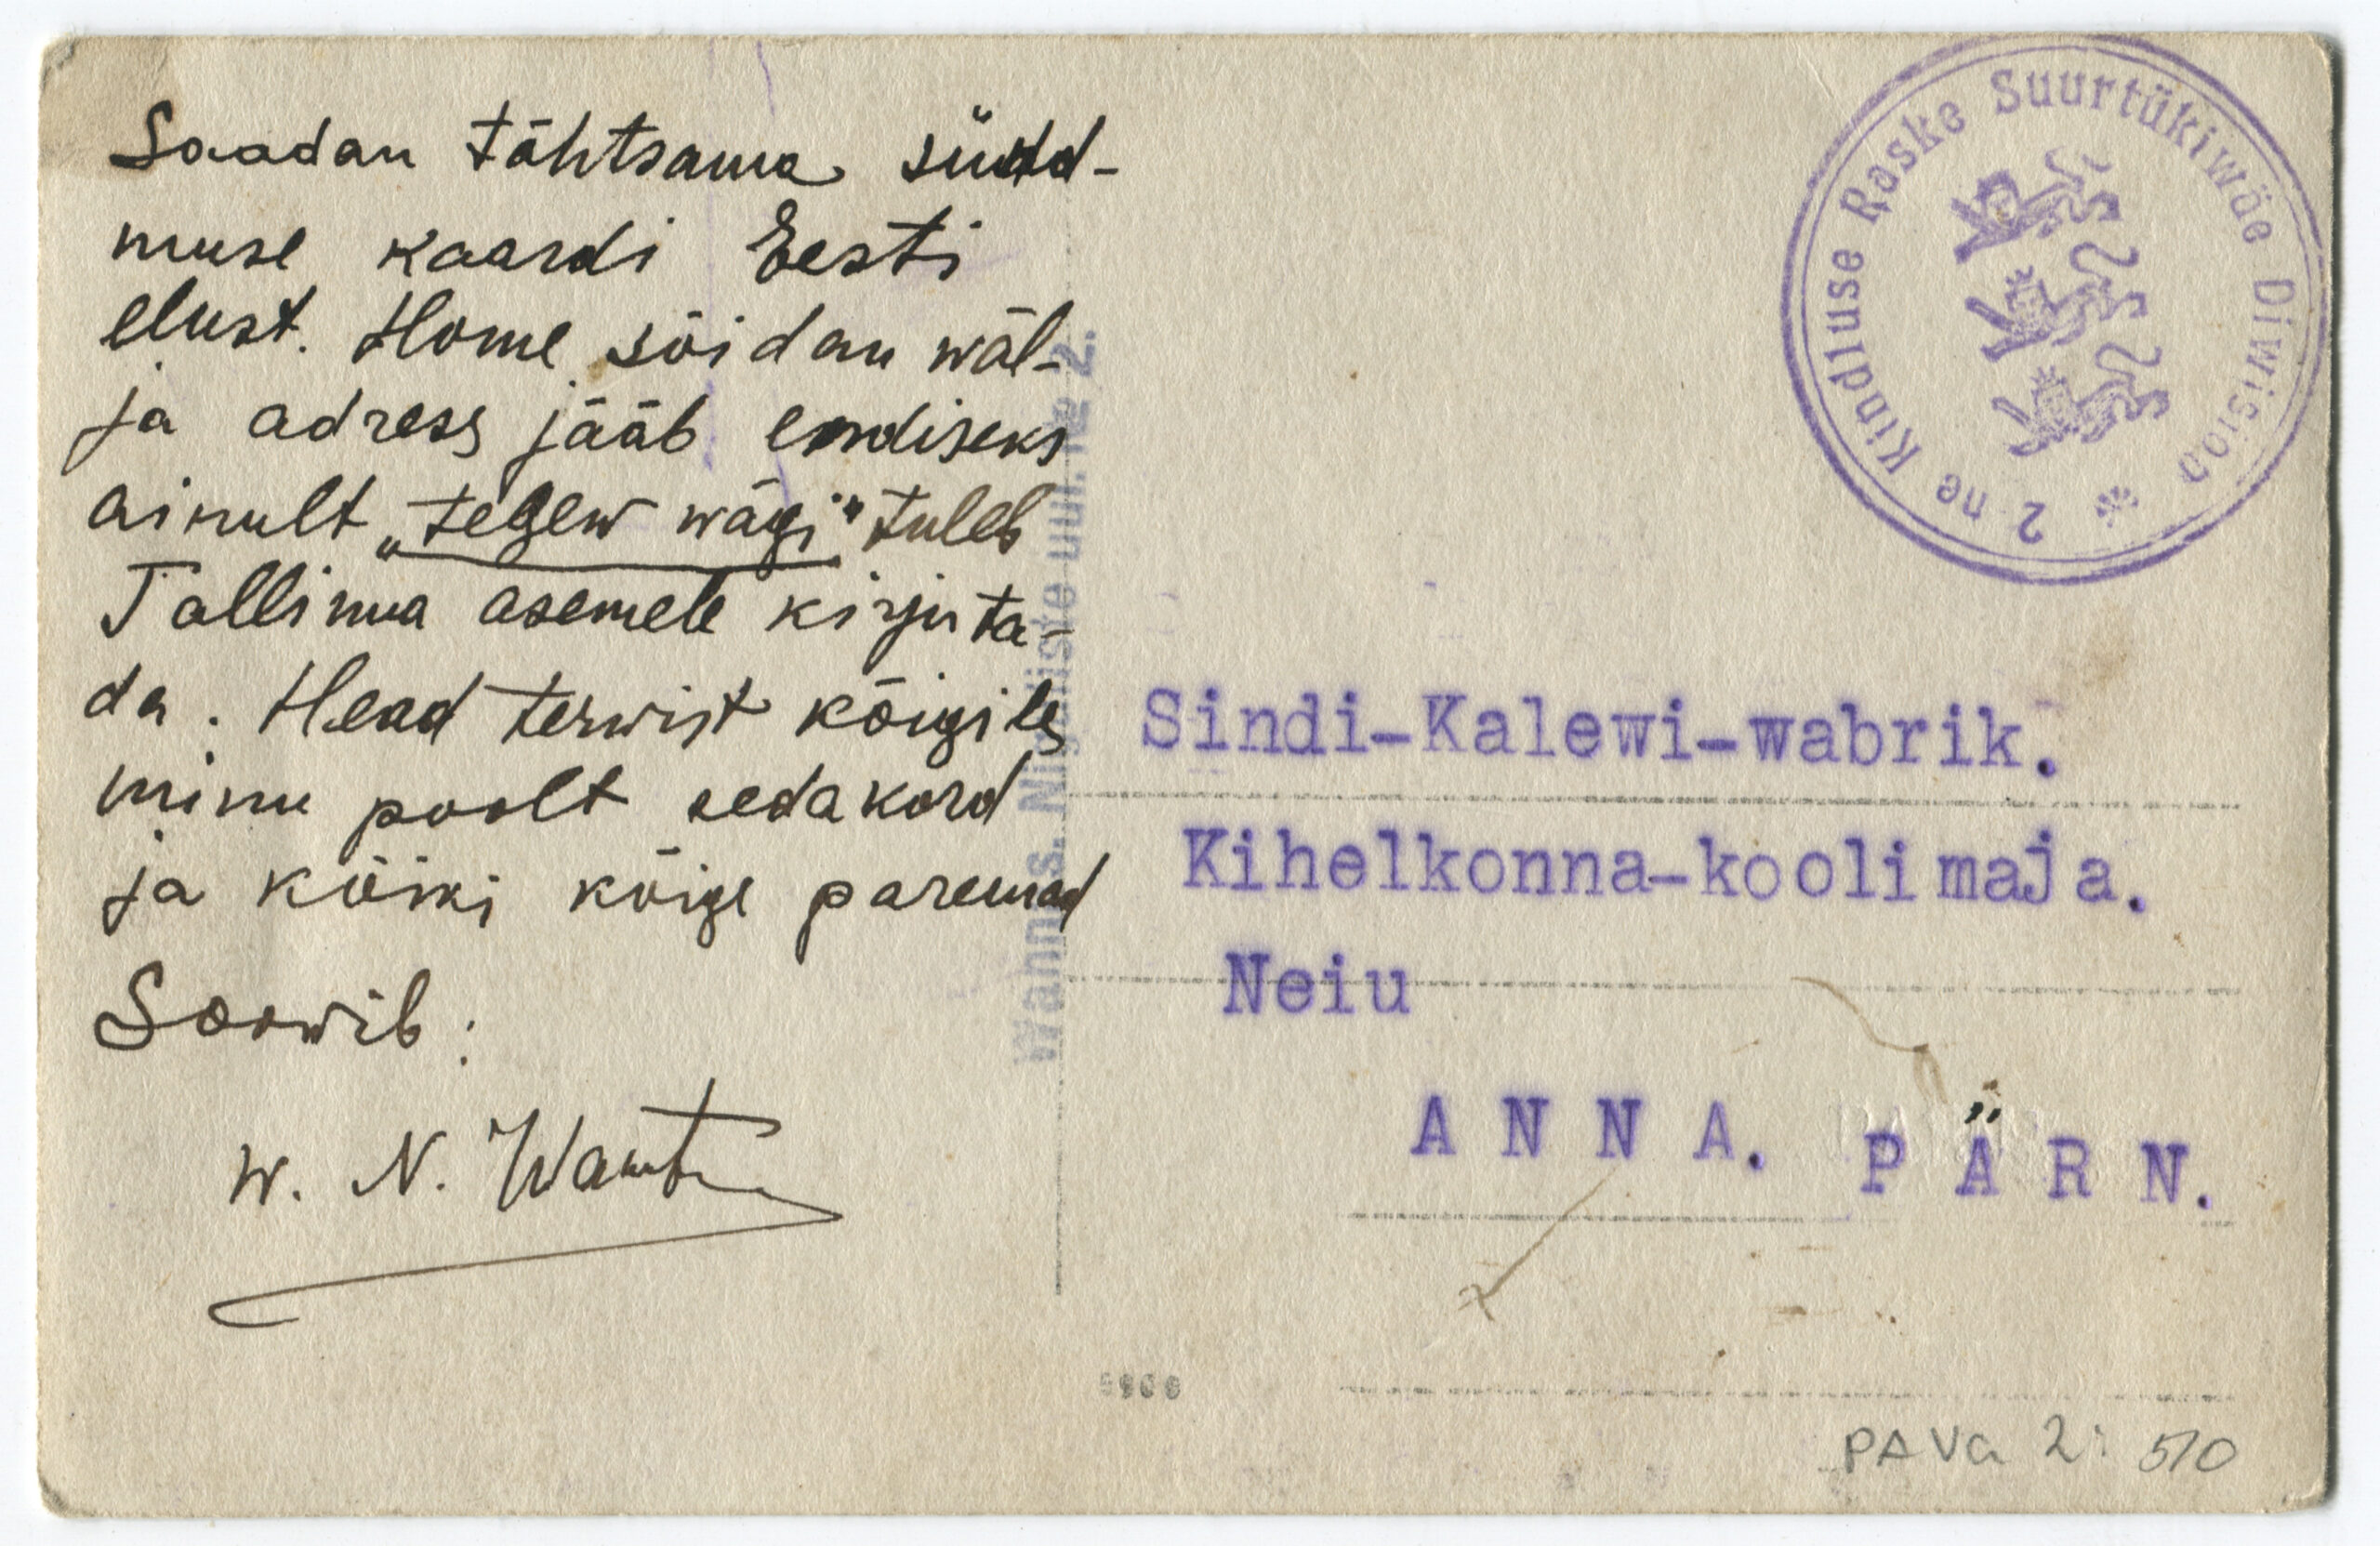 Saadan tähtsama sünd-
muse kaardi Eesti
elust. Home sõidan wäl-
ja adress jääb endiseks
ainult „tegew wägi" tuleb
Tallinna asemele kirjuta-
da. Head terwist kõigile
minu poolt sedakord
ja kõiki kõige paremad
Soowib:
W. N.
2 ne Kindluse Raske Suurtükiwäe Diwision
Sindi-Kalewi-wabrik.
Kihelkonna-koolimaja.
Neiu
ANNA. PÄRN.
PAVa 2: 510